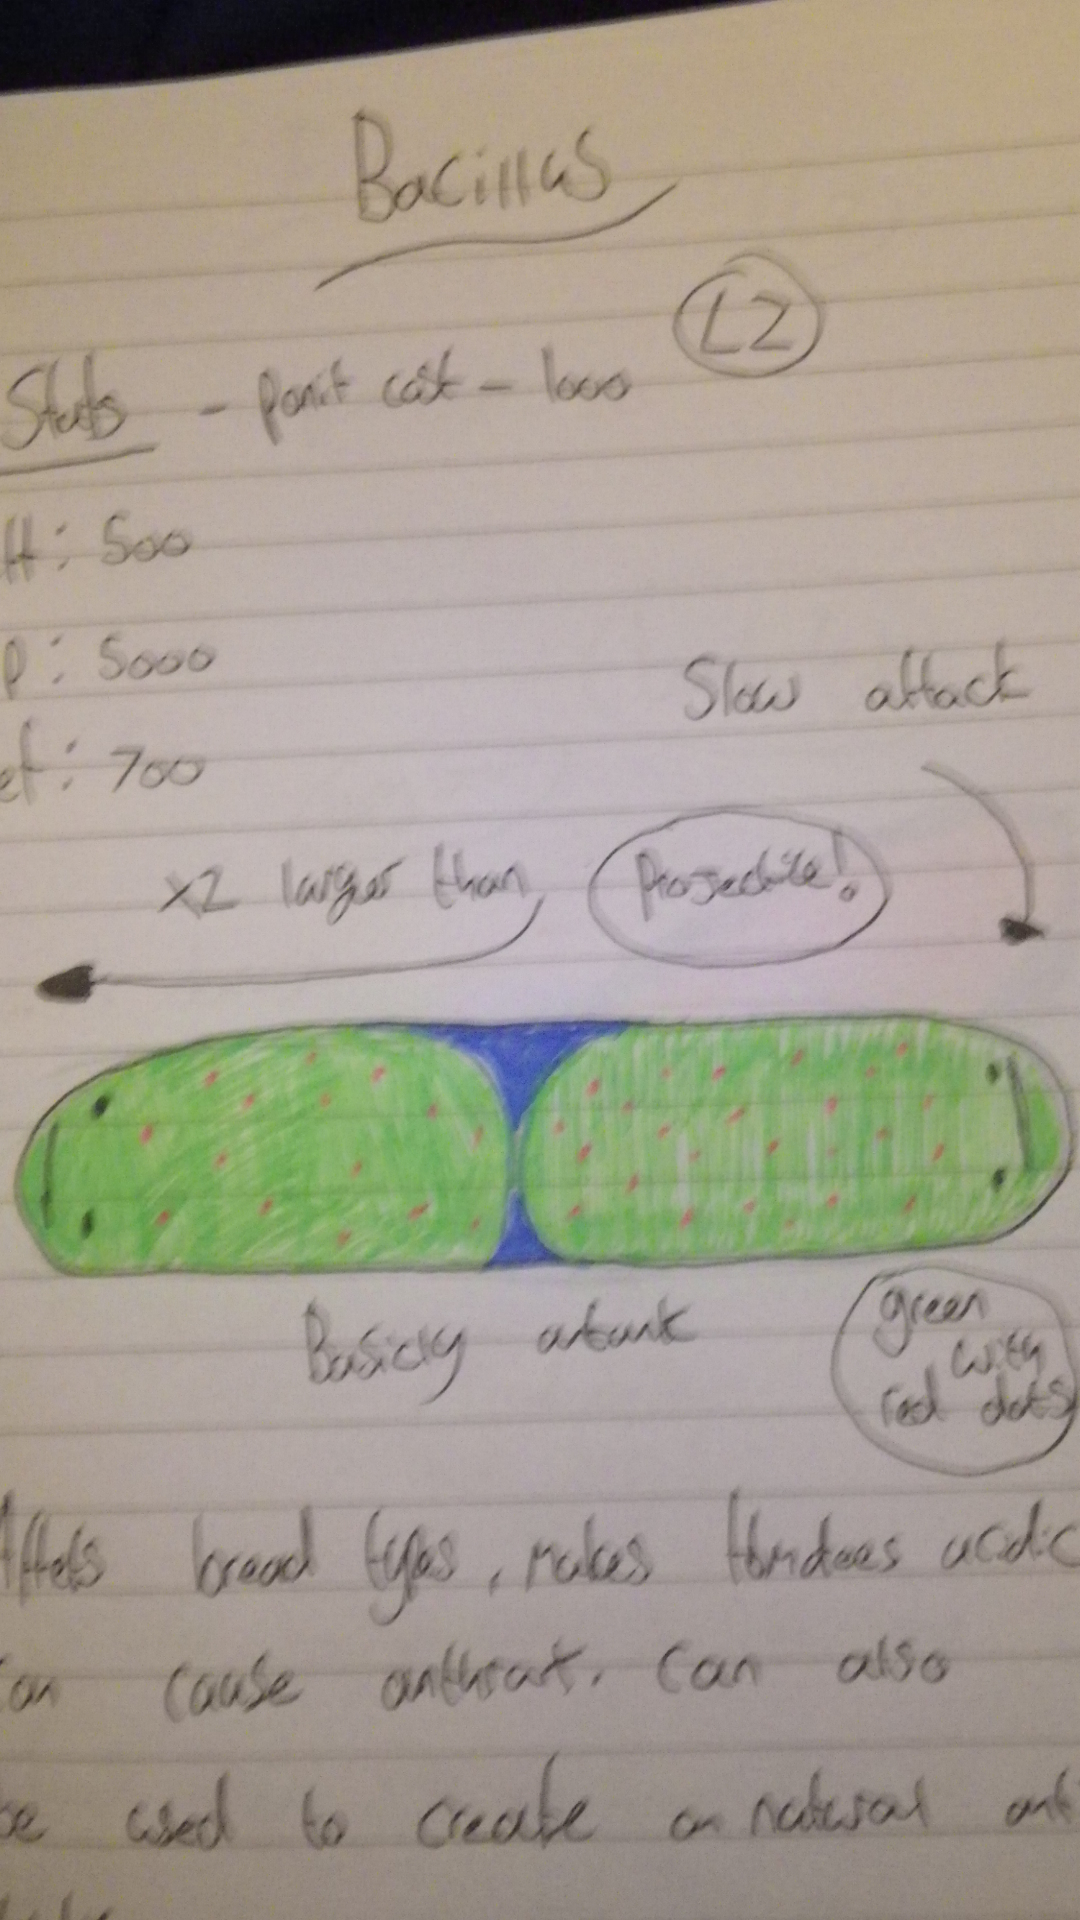 Bacillus
L2
Stats - Ponit cost - 1000
H: 500
P: 5000
ef: 700
Slow attack
x2 larger than
Projectile!
Basicly a tank
green
with
red dots
bread types, makes acidic
an cause anthrax. Can also
be used to create an natural ant